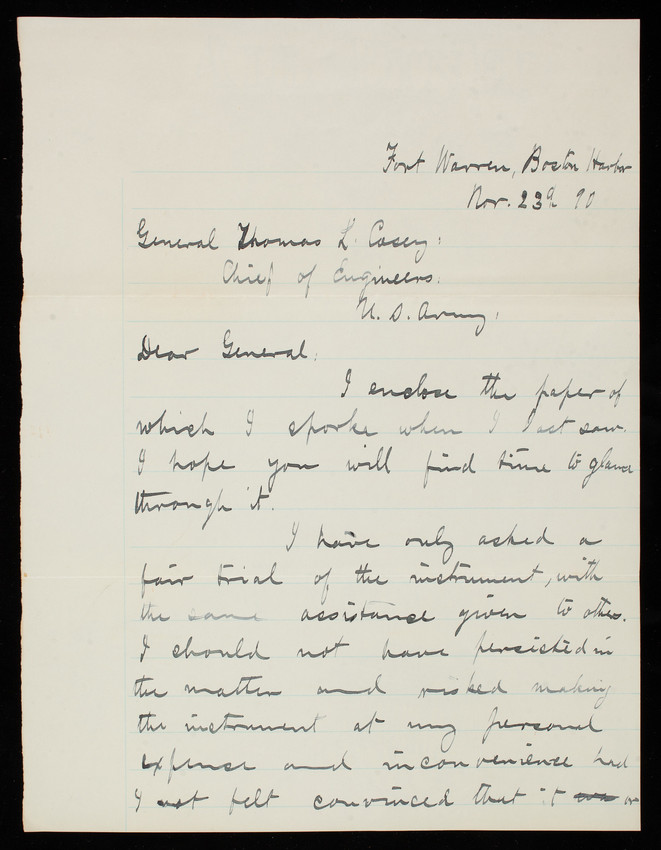 Fort Warren, Boston Harbor
Nov. 23d 90
General Thomas L. Casey;
Chief of Engineers.
U. S. Army,
Dear General:
I enclose the paper of
which I spoke when I last saw.
I hope you will find time to glance
through it.
I have only asked a
fair trial of the instrument, with
the same assistance given to others.
I should not have persisted in
the matter and risked making
the instrument at my personal
expense and inconvenience had
I not felt convinced that it was or